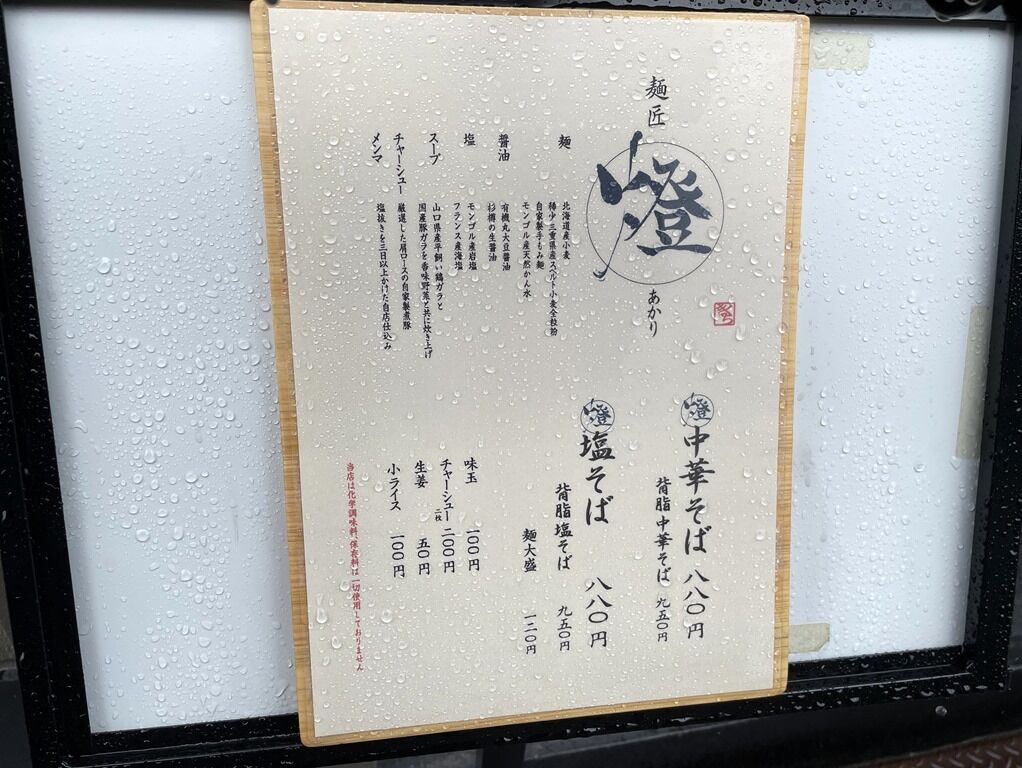 麺匠
燈
あかり
麺
北海道産小麦
稀少三重県産スペルト小麦全粒粉
自家製手もみ麺
モンゴル産天然かん水
醤油
有機丸大豆醤油
杉樽の生醤油
塩
モンゴル産岩塩
フランス産海塩
スープ
山口県産平飼い鶏ガラと
国産豚ガラを香味野菜と共に炊き上げ
チャーシュー
厳選した肩ロースの自家製煮豚
メンマ
塩抜きを三日以上かけた自店仕込み
燈 中華そば 八八〇円
背脂中華そば 九五〇円
燈 塩そば 八八〇円
背脂塩そば 九五〇円
麺大盛 一二〇円
味玉 一〇〇円
チャーシュー二枚 二〇〇円
生姜 五〇円
小ライス 一〇〇円
当店は化学調味料、保存料は一切使用しておりません